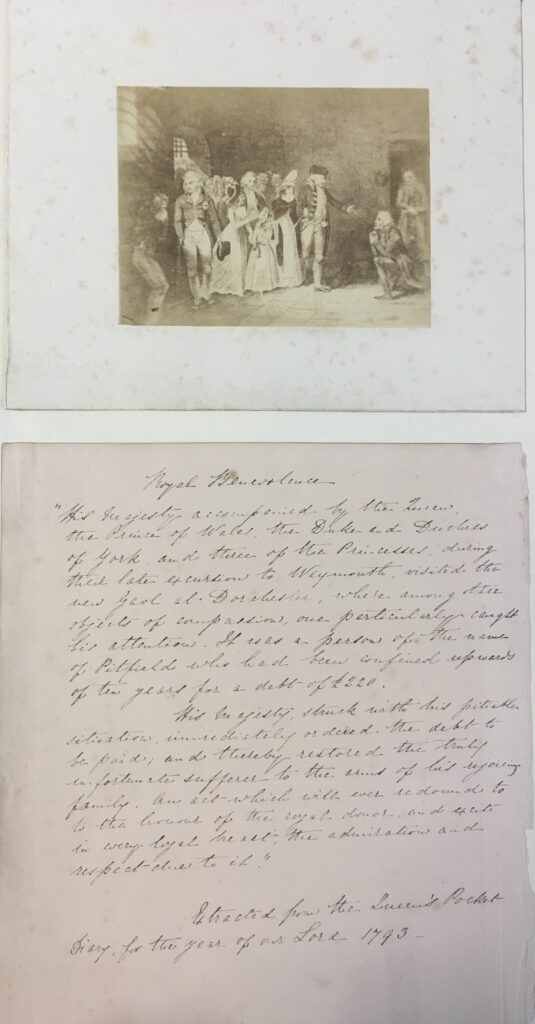 Royal Benevolence
"His Majesty accompanied by the Queen,
the Prince of Wales, the Duke and Duchess
of York, and three of the Princesses, during
their late excursion to Weymouth, visited the
new Gaol at Dorchester, where among other
objects of compassion, one particularly caught
his attention. It was a person of the name
of Pitfield who had been confined upwards
of ten years for a debt of £220.
His Majesty, struck with his pitiable
situation, immediately ordered the debt to
be paid; and thereby restored the truly
unfortunate sufferer to the arms of his rejoicing
family. An act which will ever redound to
to the honour of the royal donor, and excite
in every loyal breast, the admiration and
respect due to it."
Extracted from the Queen's Pocket
Diary, for the year of our Lord 1793 -